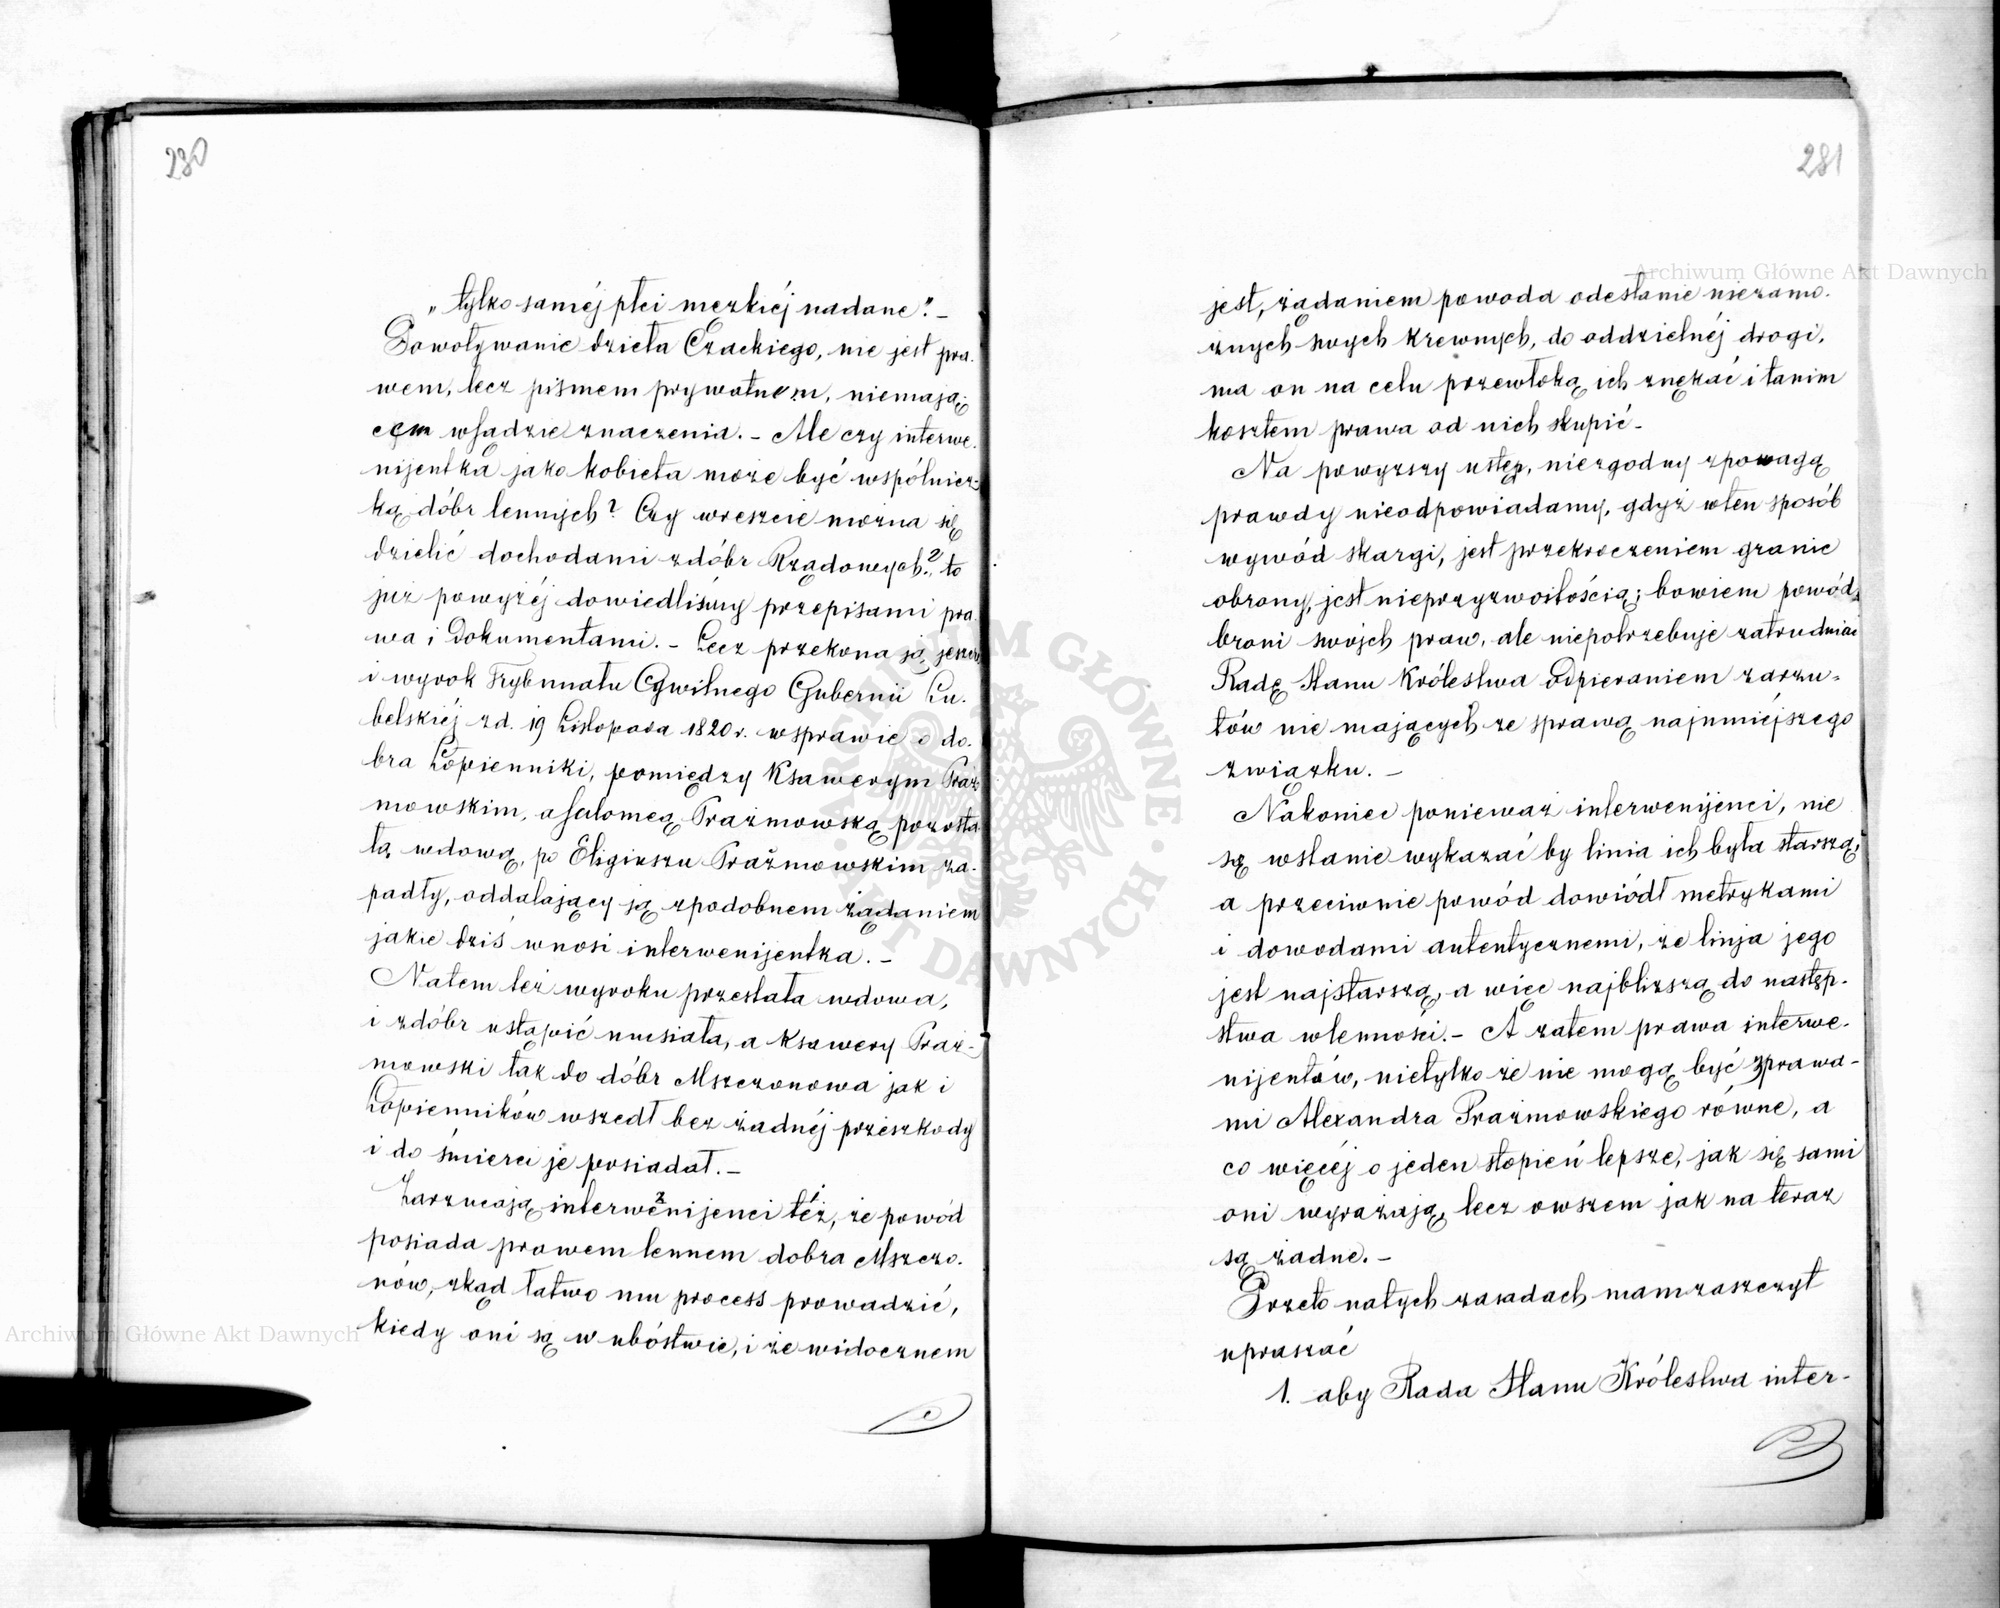 230
„tylko saméj płci męzkiéj nadane”. –
Powoływanie dzieła Czackiego, nie jest pra-
wem, lecz pismem prywatnem, niemają-
cem władzie znaczenia. – Ale czy interwe-
nijentka jako kobieta może być wspólnicz-
ką dóbr lennych? Czy wreszcie można się
dzielić dochodami z dóbr Rządowych?, to
już powyżéj dowiedliśmy przepisami pra-
wa i Dokumentami. – Lecz przekona ją jeszcze
i wyrok Trybunału Cywilnego Gubernii Lu-
belskiéj z d. 19 Listopada 1820 r. w sprawie o do-
bra Łopienniki, pomiędzy Ksawerym Praż-
mowskim, a Salomeą Prażmowską pozosta-
łą wdową, po Eligiuszu Prażmowskim za-
padły, oddalający ją z podobnem żądaniem
jakie dziś wnosi interwenijentka. –
Na tem też wyroku przestała wdowa,
i z dóbr ustąpić musiała, a Ksawery Praż-
mowski tak do dóbr Mszczonowa jak i
Łopienników wszedł bez żadnéj przeszkody
i do śmierci je posiadał. –
Zarzucają interwenijenci téż, że powód
posiada prawem lennem dobra Mszczo-
nów, zkąd łatwo mu process prowadzić,
kiedy oni są w ubóstwie, i że widocznem
281
jest, żądaniem powoda odesłanie niezamo-
żnych swych krewnych, do oddzielnéj drogi,
ma on na celu przewłoką ich znękać i tanim
kosztem prawa od nich skupić –
Na powyższy ustęp, niezgodny z powagą
prawdy nieodpowiadamy, gdyż w ten sposób
wywód skargi, jest przekroczeniem granic
obrony, jest nieprzyzwoitością; bowiem powód
broni swojch praw, ale niepotrzebuje zatrudniać
Radę Stanu Królestwa odpieraniem zarzu-
tów nie mających ze sprawą najmniéjszego
związku. –
Nakoniec ponieważ interwenijenci, nie
są wstanie wykazać by linia ich była starszą,
a przeciwnie powód dowiódł metrykami
i dowodami autentycznemi, że linja jego
jest najstarszą, a więc najbliższą do następ-
stwa w lenności. – A zatem prawa interwe-
nijentów, nietylko że nie mogą być z prawa-
mi Alexandra Prażmowskiego równe, a
co więcéj o jeden stopień lepsze, jak się sami
oni wyrażają, lecz owszem jak na teraz
są żadne. –
Przeto na tych zasadach mam zaszczyt
upraszać
1. aby Rada Stanu Królestwa inter-
Archiwum Główne Akt Dawnych
Archiwum Główne Akt Dawnych
ARCHIWUM GŁÓWNE AKT DAWNYCH